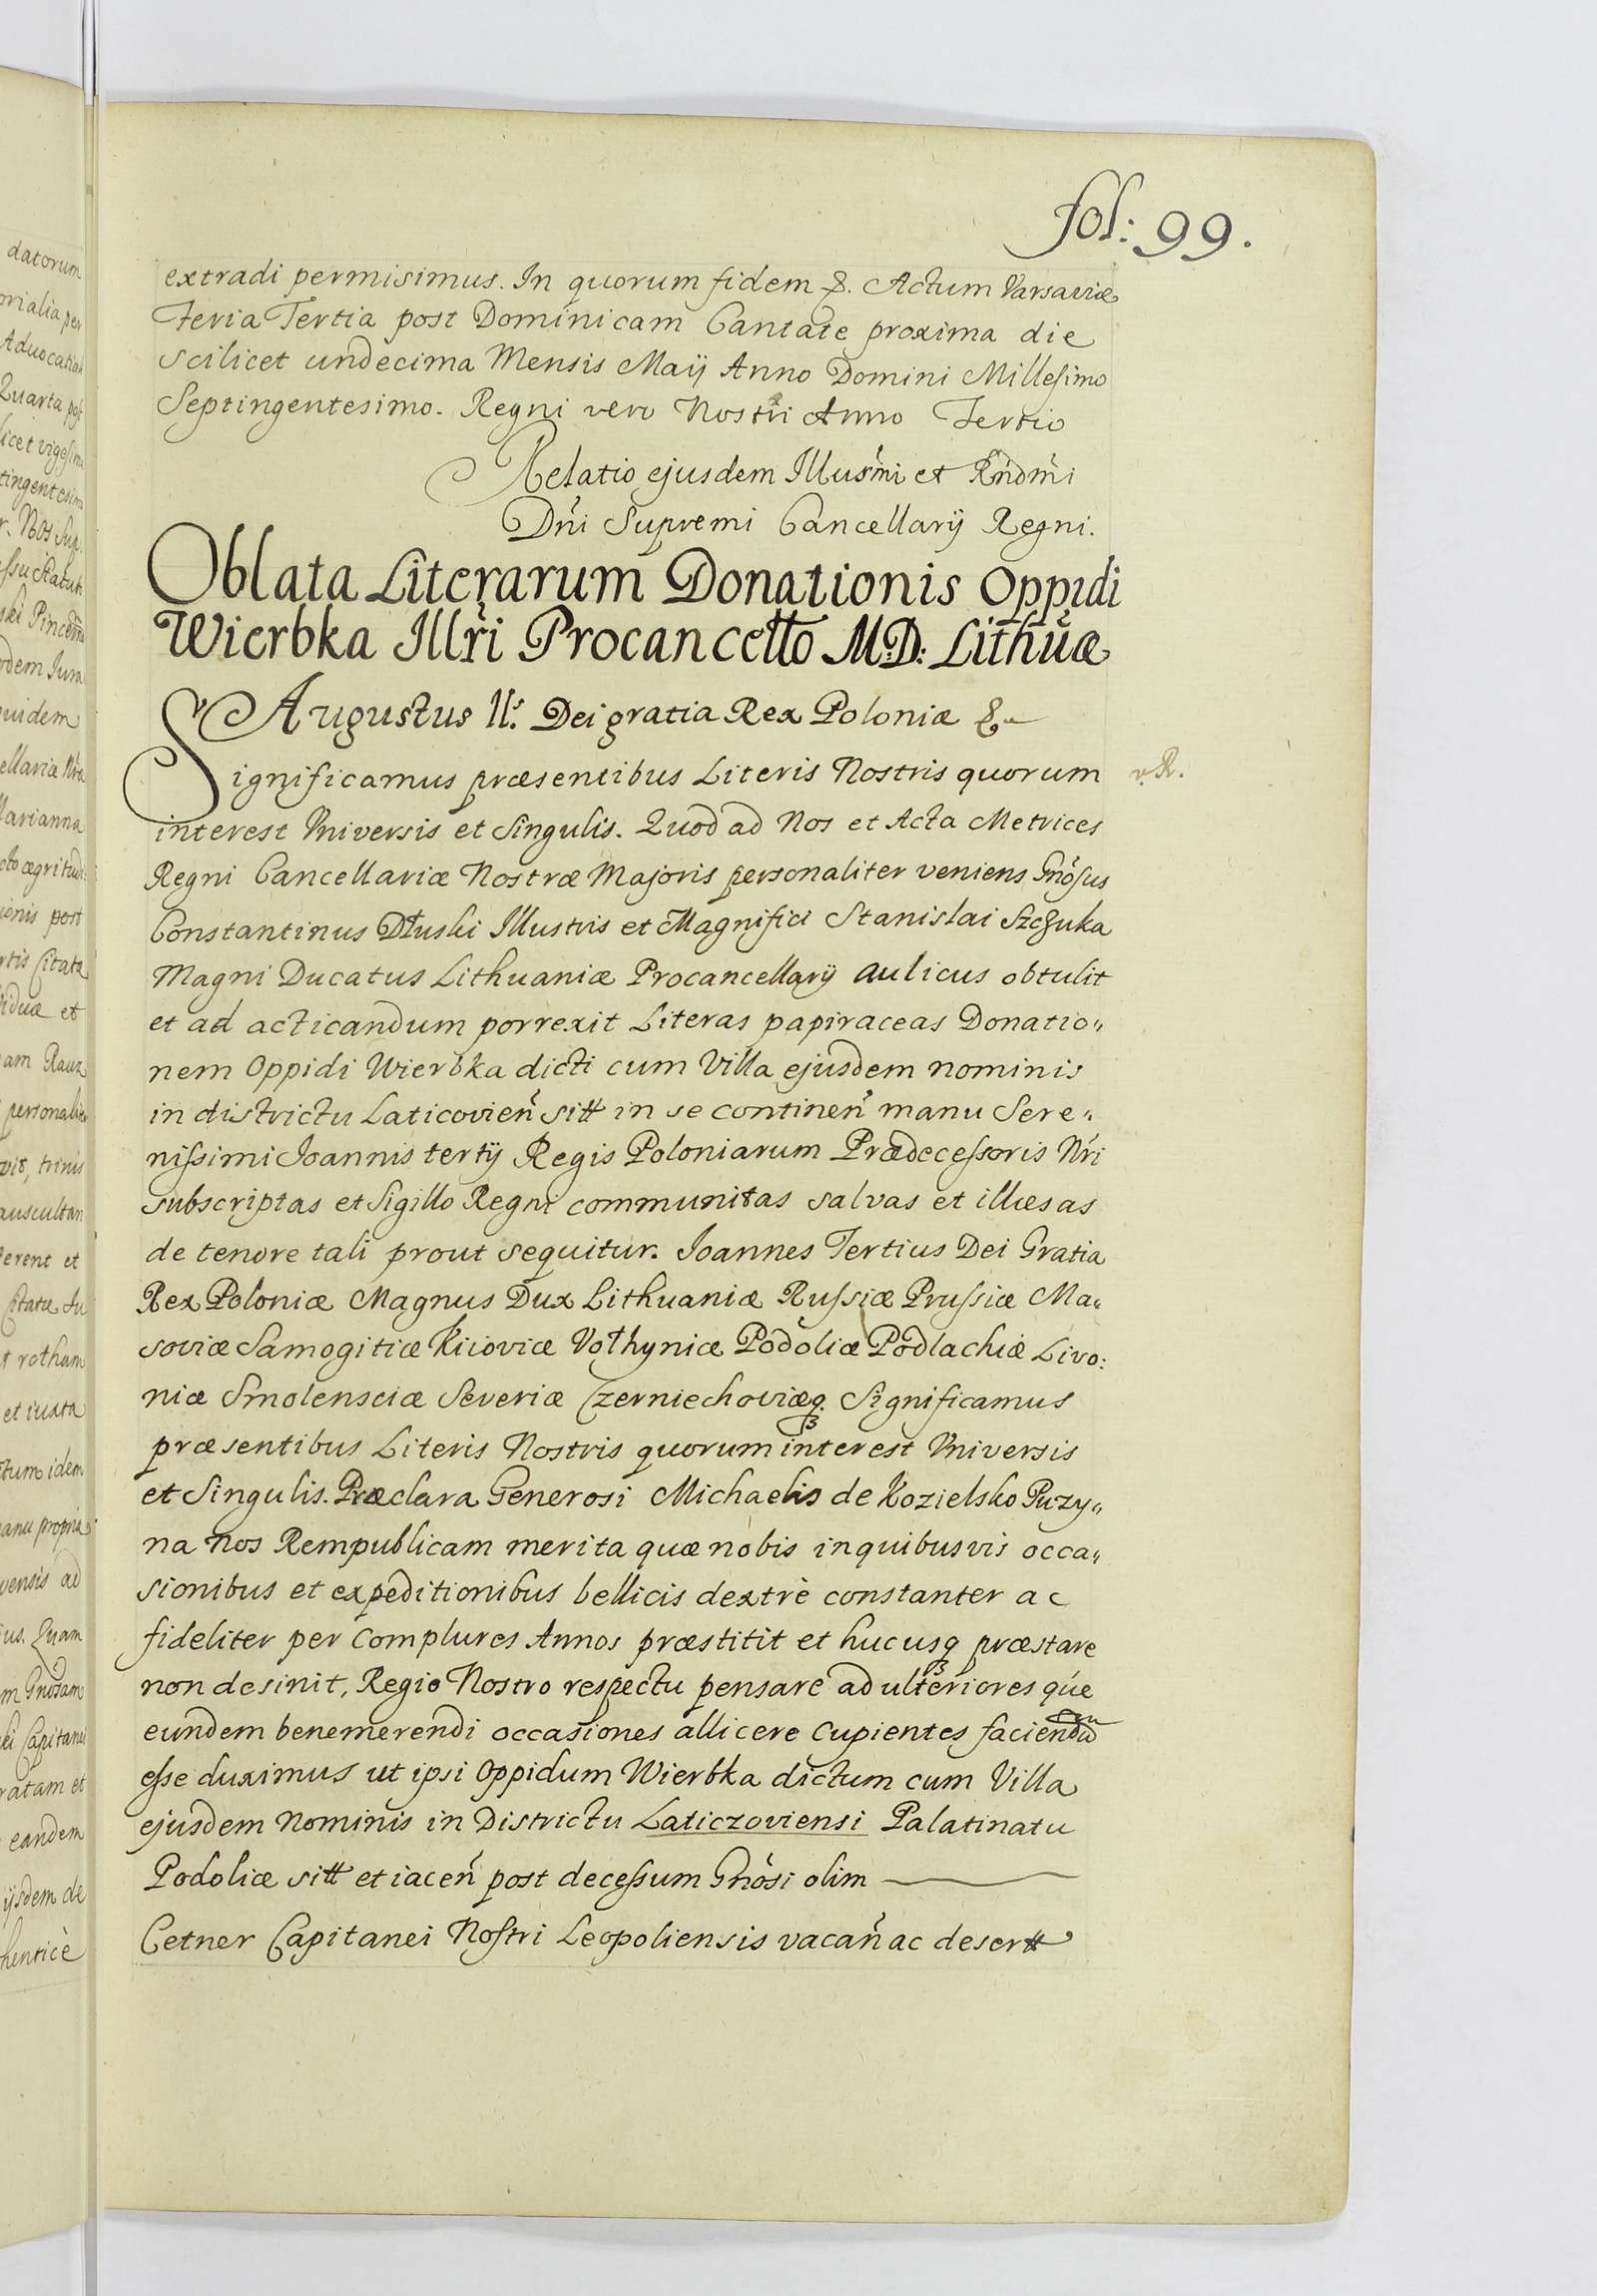 fol: 99.
extradi permisimus. In quorum fidem &. Actum Varsaviæ
Feria Tertia post Dominicam Cantate proxima die
scilicet undecima Mensis Maij Anno Domini Millesimo
Septingentesimo. Regni vero Nostri Anno Tertio
Relatio ejusdem Illusm̃i et Rñdm̃i
Dñi Supremi Cancellarij Regni.
Oblata Literarum Donationis Oppidi
Wierbka Illr̃i Procancello M.D: Lithuæ
Augustus II.s Dei gratia Rex Poloniæ &
Significamus præsentibus Literis Nostris quorum
v. R.
interest Vniversis et Singulis. Quod ad Nos et Acta Metrices
Regni Cancellariæ Nostræ Majoris personaliter veniens Gñosus
Constantinus Dłuski Illustris et Magnifici Stanislai Szczuka
Magni Ducatus Lithuaniæ Procancellarij aulicus obtulit
et ad acticandum porrexit Literas papiraceas Donatio„
nem Oppidi Wierbka dicti cum Villa ejusdem nominis
in districtu Laticovieñ sitt in se contineñ manu Sere„
nissimi Joannis tertij Regis Poloniarum Prædecessoris Nr̃i
subscriptas et Sigillo Regni communitas salvas et illæsas
de tenore tali prout sequitur. Joannes Tertius Dei Gratia
Rex Poloniæ Magnus Dux Lithuaniæ Russiæ Prussiæ Ma„
soviæ Samogitiæ Kiioviæ Vołhyniæ Podoliæ Podlachiæ Livo:
niæ Smolensciæ Severiæ Czerniechoviæq3 Significamus
præsentibus Literis Nostris quorum interest Vniversis
et Singulis. Præclara Generosi Michaelis de Kozielsko Puzy„
na nos Rempublicam merita quæ nobis in quibusvis occa„
sionibus et expeditionibus bellicis dextrè constanter ac
fideliter per complures Annos præstitit et hucusq3 præstare
non desinit, Regio Nostro respectu pensare ad ulteriores que
eundem benemerendi occasiones allicere Cupientes faciendu
esse duximus ut ipsi Oppidum Wierbka dictum cum Villa
ejusdem Nominis in Districtu Laticzoviensi Palatinatu
Podoliæ sitt et iaceñ post decessum Gñosi olim
Cetner Capitanei Nostri Leopoliensis vacañ ac desertt